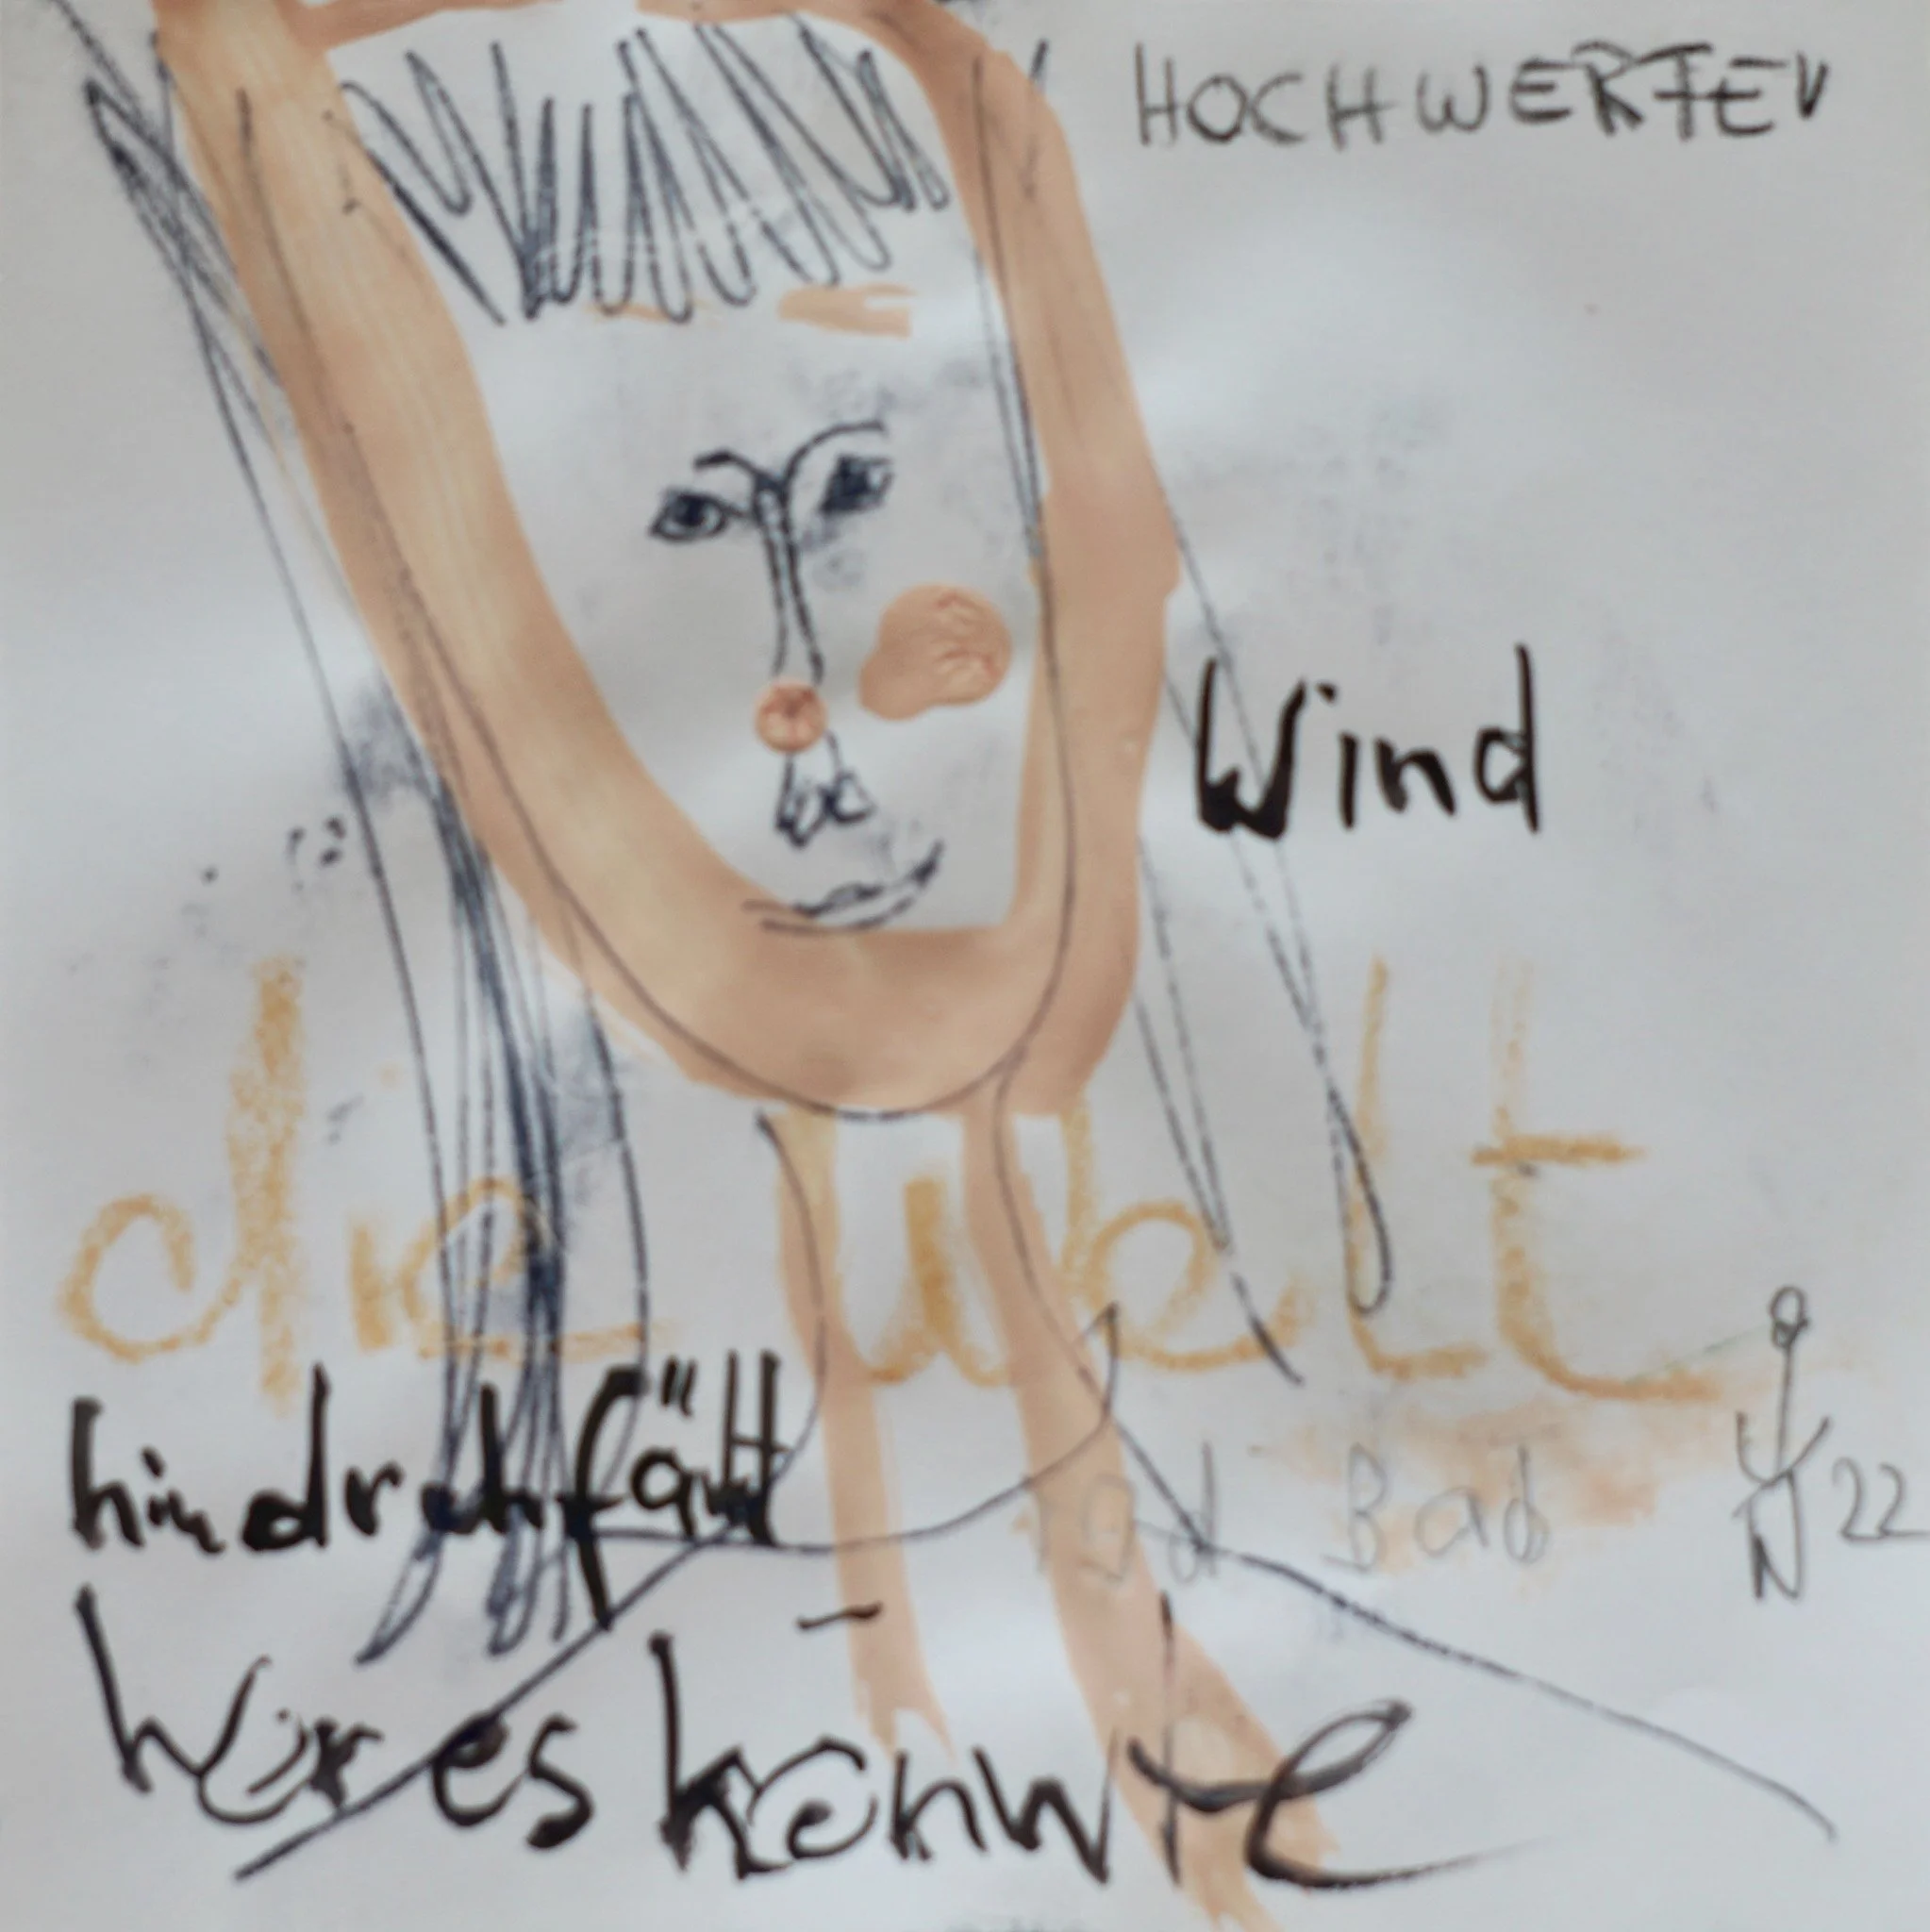 HOCHWERFEN
Wind
die welt
hindrchfällt
Wer es könnte
od Bad
22